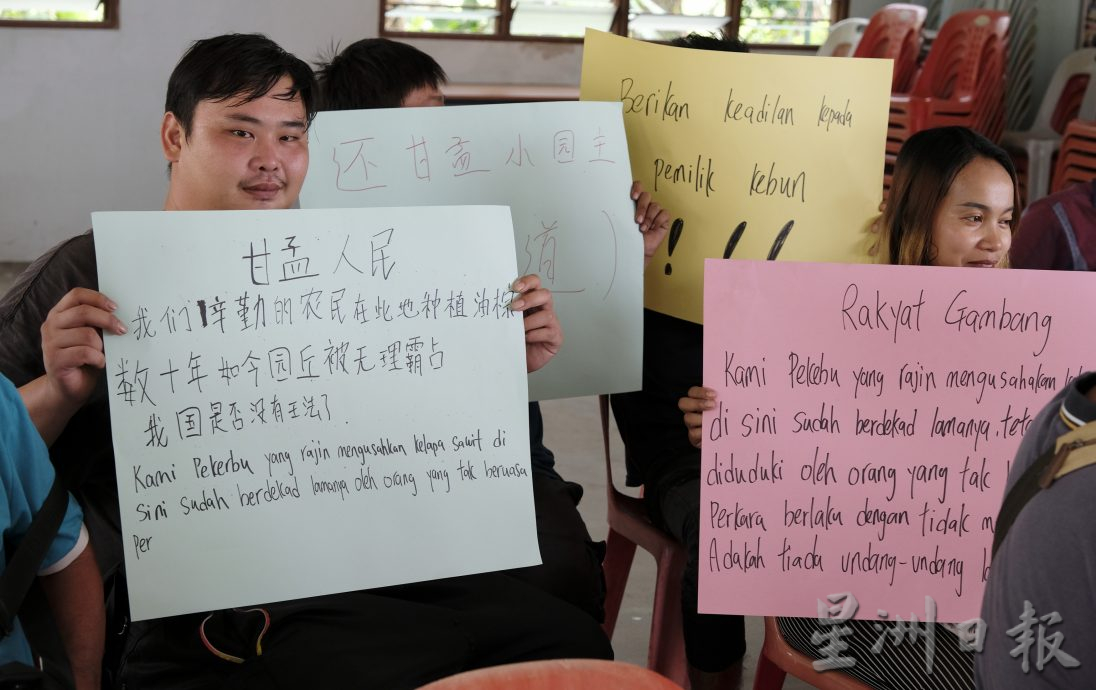 甘孟人民
我们辛勤的农民在此地种植油棕
数十年如今园丘被无理霸占
我国是否没有王法了.
Kami Pekerbu yang rajin mengusahkan kelapa sawit di
sini sudah berdekad lamanya oleh orang yang tak beruasa
Per
还甘孟小园主
道)
Berikan keadilan kepada
pemilik kebun
!!!
Rakyat Gambang
Kami Pekebu yang rajin mengusahakan
di sini sudah berdekad lamanya, teta
diduduki oleh orang yang tak
Perkara berlaku dengan tidak
Adakah tiada undang-undang
星洲日报